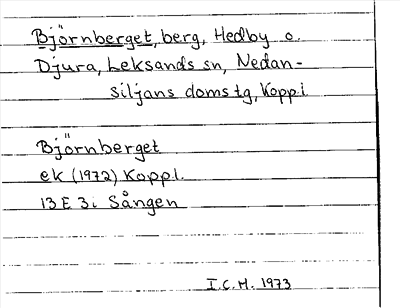 Björnberget, berg, Hedby o.
Djura, Leksands sn, Nedan-
siljans domstg, Koppl.
Björnberget
ek (1972) Koppl.
13 E 3i Sången
I.C.H. 1973